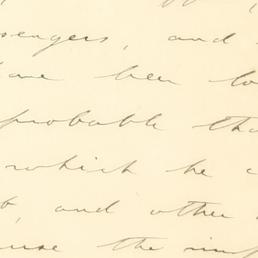 sengers, and
have been lo
probable tha
which he c
t, and other
use the imp